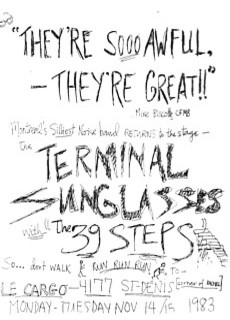 "THEY'RE SOOO AWFUL,
— THEY'RE GREAT!!"
Montreal's Silliest Noise band RETURNS to the stage —
the
TERMINAL
SUNGLASSES
with!! The 39 STEPS
So... don't WALK & RUN RUN RUN to —
LE CARGO — 4177 ST-DENIS
MONDAY - TUESDAY NOV 14/15 1983